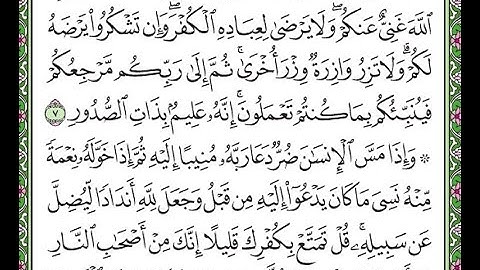 ٱللَّهَ غَنِيٌّ عَنكُمۡۖ وَلَا يَرۡضَىٰ لِعِبَادِهِ ٱلۡكُفۡرَۖ وَإِن تَشۡكُرُواْ يَرۡضَهُ
لَكُمۡۗ وَلَا تَزِرُ وَازِرَةٞ وِزۡرَ أُخۡرَىٰۚ ثُمَّ إِلَىٰ رَبِّكُم مَّرۡجِعُكُمۡ
فَيُنَبِّئُكُم بِمَا كُنتُمۡ تَعۡمَلُونَۚ إِنَّهُۥ عَلِيمُۢ بِذَاتِ ٱلصُّدُورِ ٧
۞ وَإِذَا مَسَّ ٱلۡإِنسَٰنَ ضُرّٞ دَعَا رَبَّهُۥ مُنِيبًا إِلَيۡهِ ثُمَّ إِذَا خَوَّلَهُۥ نِعۡمَةٗ
مِّنۡهُ نَسِيَ مَا كَانَ يَدۡعُوٓاْ إِلَيۡهِ مِن قَبۡلُ وَجَعَلَ لِلَّهِ أَندَادٗا لِّيُضِلَّ
عَن سَبِيلِهِۦۚ قُلۡ تَمَتَّعۡ بِكُفۡرِكَ قَلِيلًا إِنَّكَ مِنۡ أَصۡحَٰبِ ٱلنَّارِ